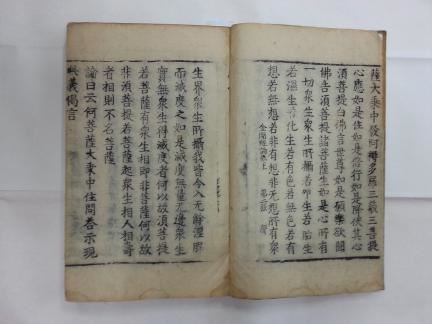 薩大乘中發阿耨多羅三藐三菩提
心應如是住如是修行如是降伏其心
須菩提白佛言世尊如是願樂欲聞
佛告須菩提諸菩薩生如是心所有
一切衆生衆生所攝若卵生若胎生
金剛經論卷上 第二張
若濕生若化生若有色若無色若有
想若無想若非有想非无想所有衆
生界衆生所攝我皆令入无餘涅槃
而滅度之如是滅度無量无邊衆生
實無衆生得滅度者何以故須菩提
若菩薩有衆生相即非菩薩何以故
非須菩提若菩薩起衆生相人相壽
者相則不名菩薩
論曰云何菩薩大乘中住問荅示現
此義偈言